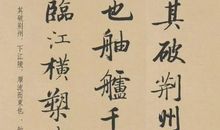 其破荆州
也舳舻千
臨江横槊
其破荆州，下江陵，顺流而東也，舳